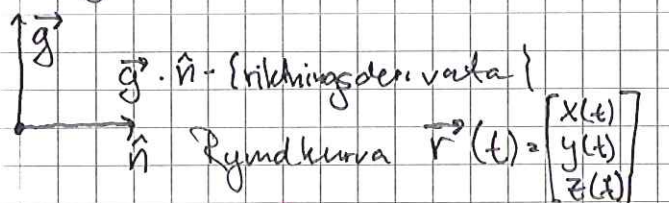 $\vec{g}$
$\vec{g} \cdot \hat{n}$ - {riktningsderivata}
$\hat{n}$ Rymdkurva $\vec{r}(t) = \begin{bmatrix} x(t) \\ y(t) \\ z(t) \end{bmatrix}$